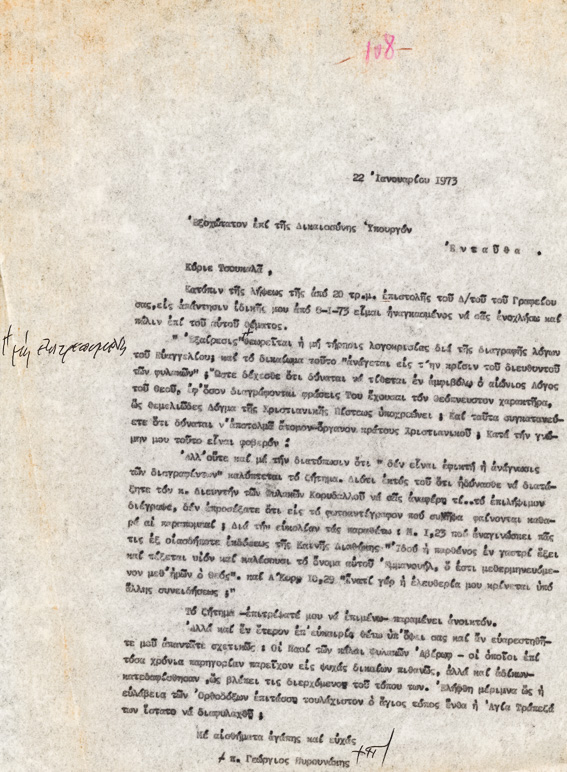 108-
22 Ἰανουαρίου 1973
Ἐξοχώτατον ἐπί τῆς Δικαιοσύνης Ὑπουργόν
Ἐνταῦθα .
Κύριε Τσουκαλᾶ ,
Κατόπιν τῆς λήψεως τῆς ἀπό 20 τρ.μ. ἐπιστολῆς τοῦ Δ/τοῦ τοῦ Γραφείου
σας,εἰς ἀπάντησιν ἰδικῆς μου ἀπό 6-I-73 εἶμαι ἠναγκασμένος νά σᾶς ἐνοχλήσω καί
πάλιν ἐπί τοῦ αὐτοῦ θέματος.
" Ἐξαίρεσις" θεωρεῖται ἡ μή τήρησις λογοκρισίας διά τῆς διαγραφῆς λόγων
τοῦ Εὐαγγελίου; καί τό δικαίωμα τοῦτο "ἀνάγεται εἰς τ'ην κρίσιν τοῦ διευθυντοῦ
τῶν φυλακῶν" ; Ὥστε δέχεσθε ὅτι δύναται νά τίθεται ἐν ἀμφιβόλῳ ὁ αἰώνιος Λόγος
τοῦ Θεοῦ, ἐφ'ὅσον διαγράφονται φράσεις Του ἔχουσαι τόν θεόπνευστον χαρακτῆρα,
ὡς θεμελιῶδες δόγμα τῆς Χριστιανικῆς Πίστεως ὑποχρεώνει ; Καί ταῦτα συγκατανεύ-
ετε ὅτι δύναται ν'ἀποτολμᾶ ἄτομον-ὄργανον κράτους Χριστιανικοῦ ; Κατά τήν γνώ-
μην μου τοῦτο εἶναι φοβερόν !
Ἀλλ'οὔτε καί μέ τήν διατύπωσιν ὅτι " δέν εἶναι ἐφικτή ἡ ἀνάγνωσις
τῶν διαγραφέντων" καλύπτεται τό ζήτημα. Διότι ἐκτός τοῦ ὅτι ἠδύνασθε νά διατά-
ξητε τόν κ. Διευντήν τῶν Φυλακῶν Κορυδαλλοῦ νά σᾶς ἀναφέρῃ τί..τό ἐπιλήψιμον
διέγραψε, δέν ἐπροσέξατε ὅτι εἰς τό φωτοαντίγραφον πού συνῆψα φαίνονται καθα-
ρά αἱ παραπομπαί ; Διά τήν εὐκολίαν τάς παραθέτω : Μ. I,23 πού ἀναγινώσκει πᾶς
τις ἐξ οἱασδήποτε ἐκδόσεως τῆς Καινῆς Διαθήκης "Ἰδού ἡ παρθένος ἐν γαστρί ἕξει
καί τέξεται υἱόν καί καλέσουσι τό ὄνομα αὐτοῦ Ἐμμανουήλ, ὅ ἐστι μεθερμηνευόμε-
νον μεθ'ἡμῶν ὁ Θεός". καί Α'Κορ. IO,29 "ἱνατί γάρ ἡ ἐλευθερία μου κρίνεται ὑπό
ἄλλης συνειδήσεως ;"
Τό ζήτημα -ἐπιτρέψατέ μου νά ἐπιμένω- παραμένει ἀνοικτόν.
Ἀλλά καί ἕν ἕτερον ἐπ'εὐκαιρίᾳ θέτω ὑπ'ὄψει σας καί ἄν εὐαρεστηθῆ-
τε μοῦ ἀπαντῆτε σχετικῶς : Οἱ Ναοί τῶν πάλαι φυλακῶν Ἀβέρωφ - οἱ ὁποῖοι ἐπί
τόσα χρόνια παρηγορίαν παρεῖχον εἰς ψυχάς δικαίων πιθανῶς, ἀλλά καί ἀδίκων-
κατεδαφίσθησαν ,ὡς βλέπει τις διερχόμενος τοῦ τόπου των. Ἐλήφθη μέριμνα ὡς ἡ
εὐλάβεια τῶν Ὀρθοδόξων ἐπιτάσσῃ τουλάχιστον ὁ ἅγιος τόπος ἔνθα ἡ Ἁγία Τράπεζά
των ἵστατο νά διαφυλαχθῇ ;
Μέ αἰσθήματα ἀγάπης καί εὐχάς
+ π. Γεώργιος Πυρουνάκης